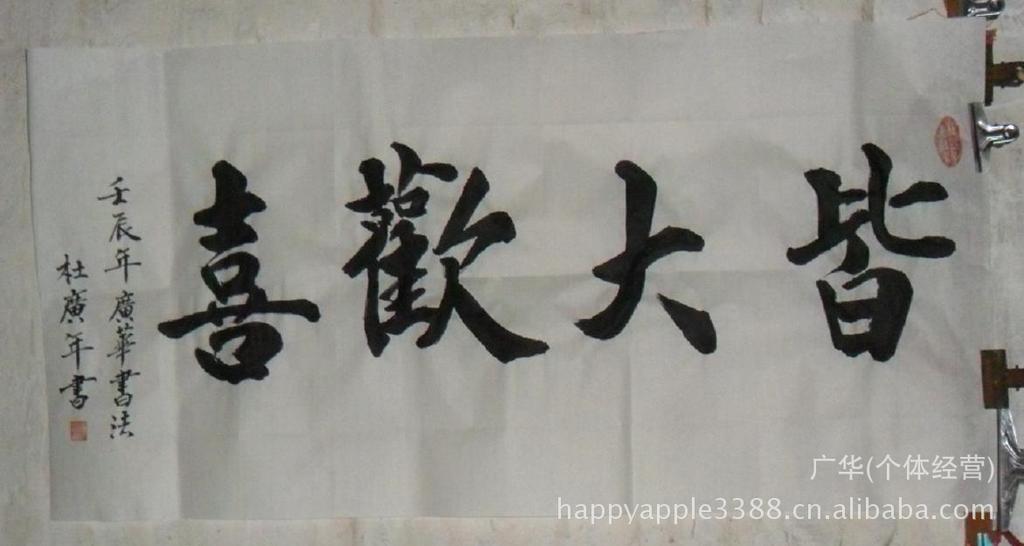 皆大歡喜
壬辰年廣華書法
杜廣年書
广华(个体经营)
happyapple3388.cn.alibaba.com